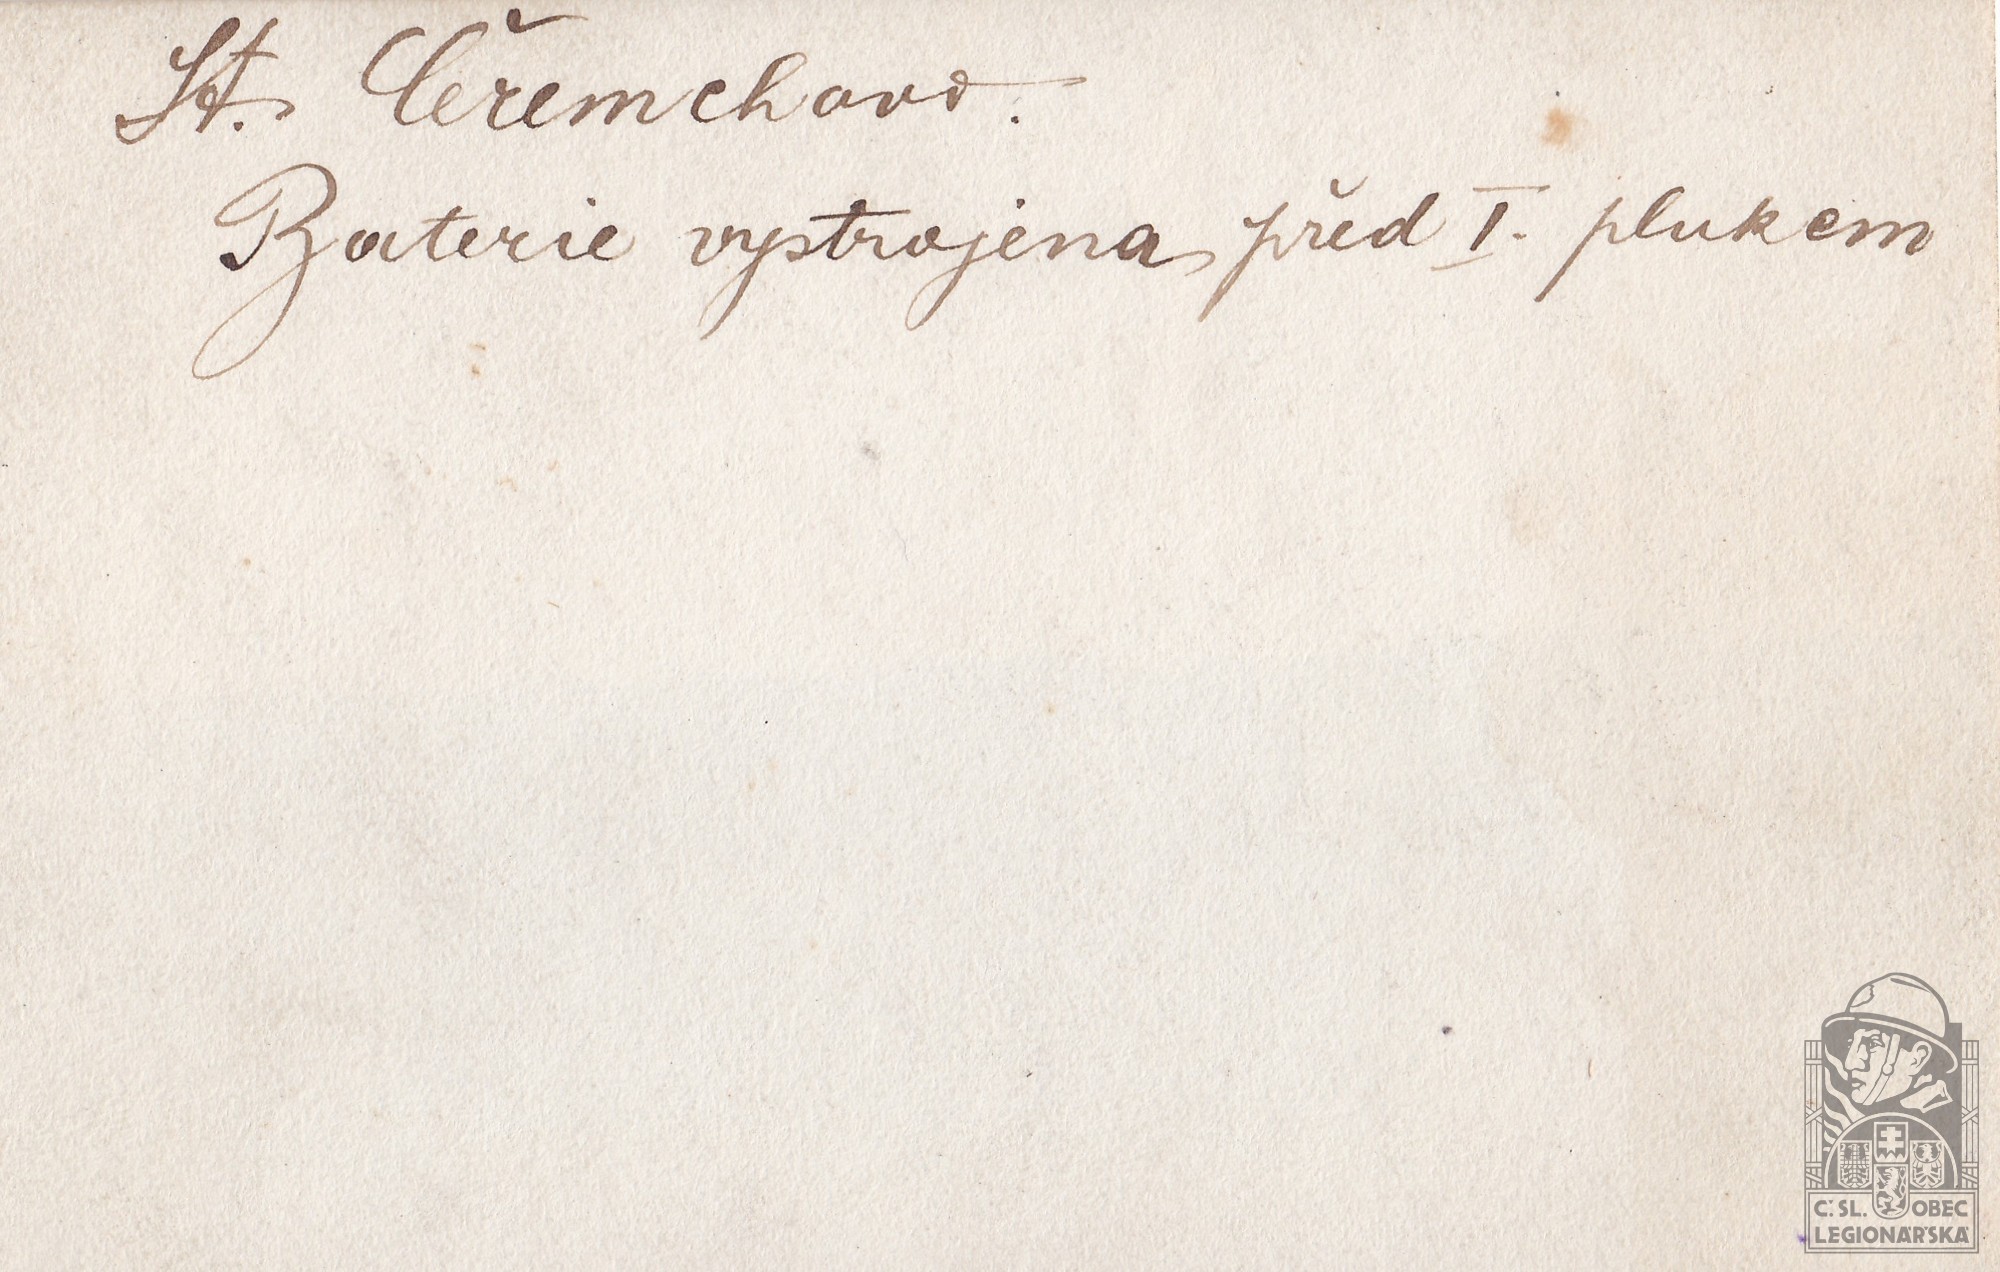 St. Čeřemchovo.
Baterie vystrojena před I. plukem
Č.SL. OBEC
LEGIONÁŘSKÁ